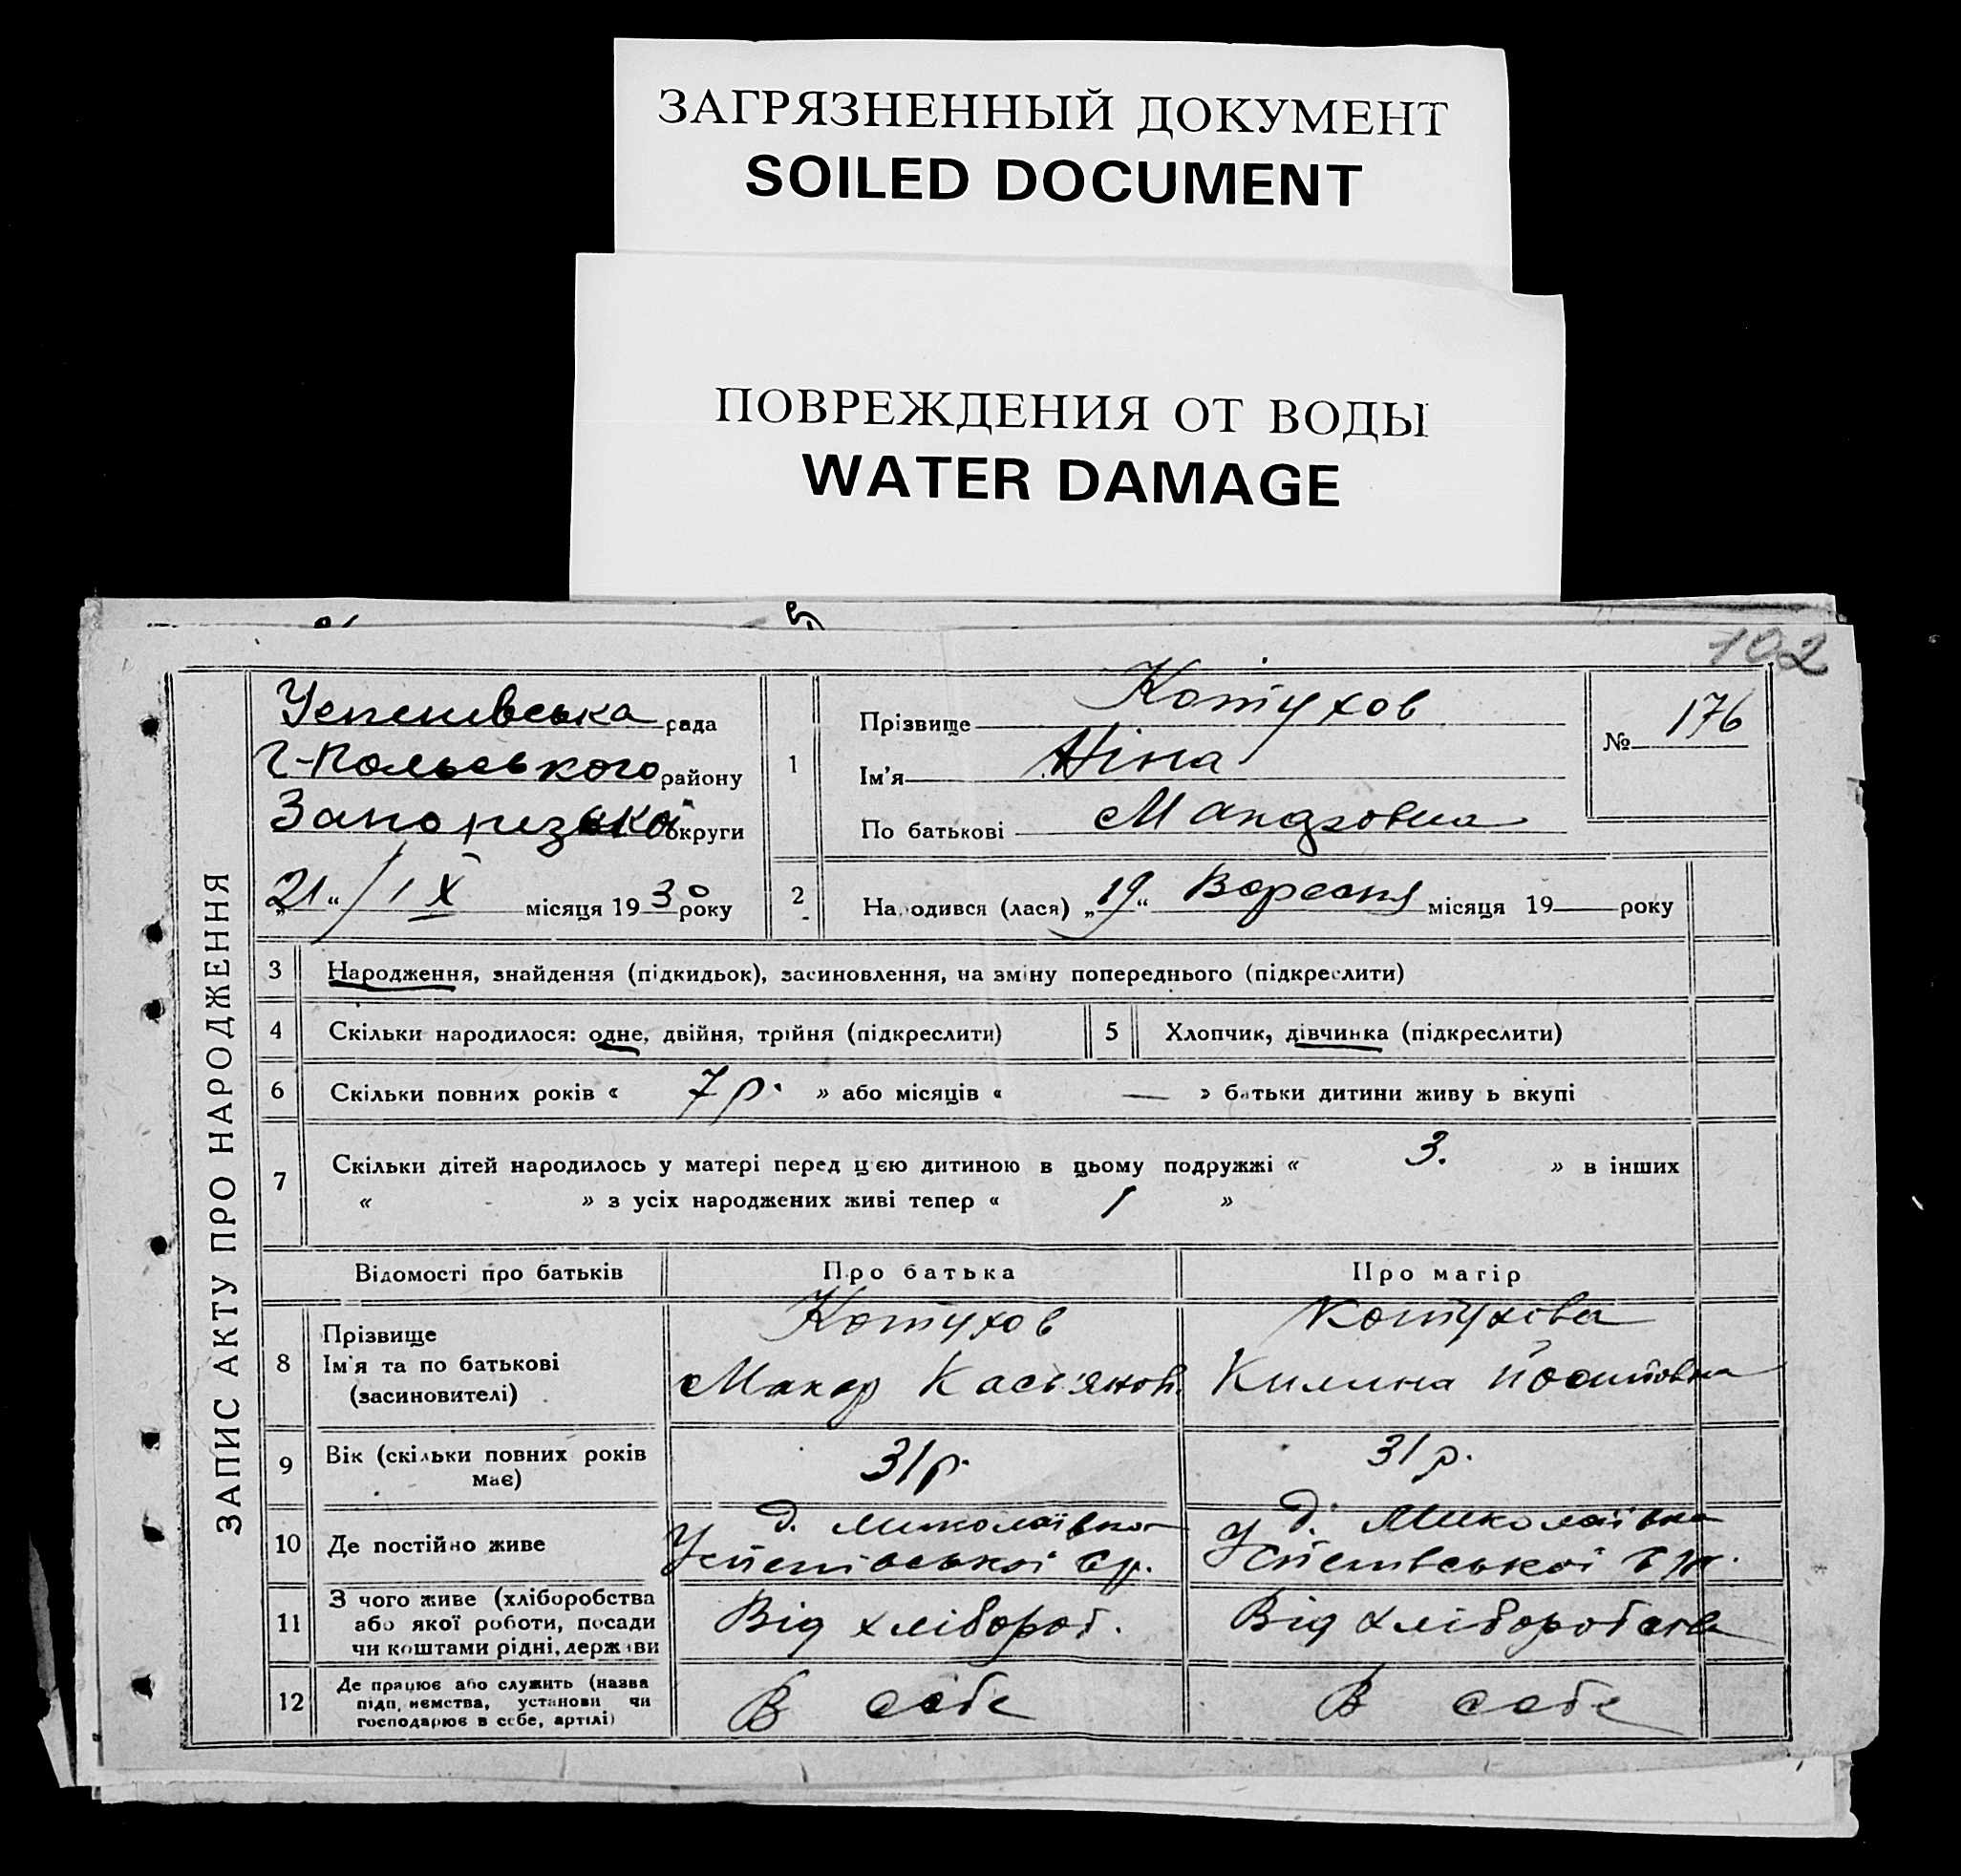 ЗАГРЯЗНЕННЫЙ ДОКУМЕНТ
SOILED DOCUMENT
ПОВРЕЖДЕНИЯ ОТ ВОДЫ
WATER DAMAGE
102
ЗАПИС АКТУ ПРО НАРОДЖЕННЯ
Успенівська рада
Г-Польського району
Запорізької округи
„21“ / IX місяця 1930 року
1
Прізвище Котухов
Ім'я Ніна
По батькові
№ 176
2
Народився (лася) „19“ Вересня місяця 19 року
3 Народження, знайдення (підкидьок), засиновлення, на зміну попереднього (підкреслити)
4 Скільки народилося: одне, двійня, трійня (підкреслити)
5 Хлопчик, дівчинка (підкреслити)
6 Скільки повних років « 7 р. » або місяців « — » батьки дитини живуть вкупі
7 Скільки дітей народилось у матері перед цією дитиною в цьому подружжі « 3. » в інших
« - » з усіх народжених живі тепер « 1 »
Відомості про батьків Про батька Про матір
8 Прізвище
Ім'я та по батькові
(засиновителі)
Котухов
Макар Кас'янов.
Котухова
Килина
9 Вік (скільки повних років
має)
31 р.
31 р.
10 Де постійно живе
д. Миколаївка
Успенівської с/р.
д. Миколаївка
Успенівської
11 З чого живе (хліборобства
або якої роботи, посади
чи коштами рідні, держави
Від хлібороб.
Від хліборобства
12 Де працює або служить (назва
підприємства, установи чи
господарює в себе, артілі)
В себе
В себе